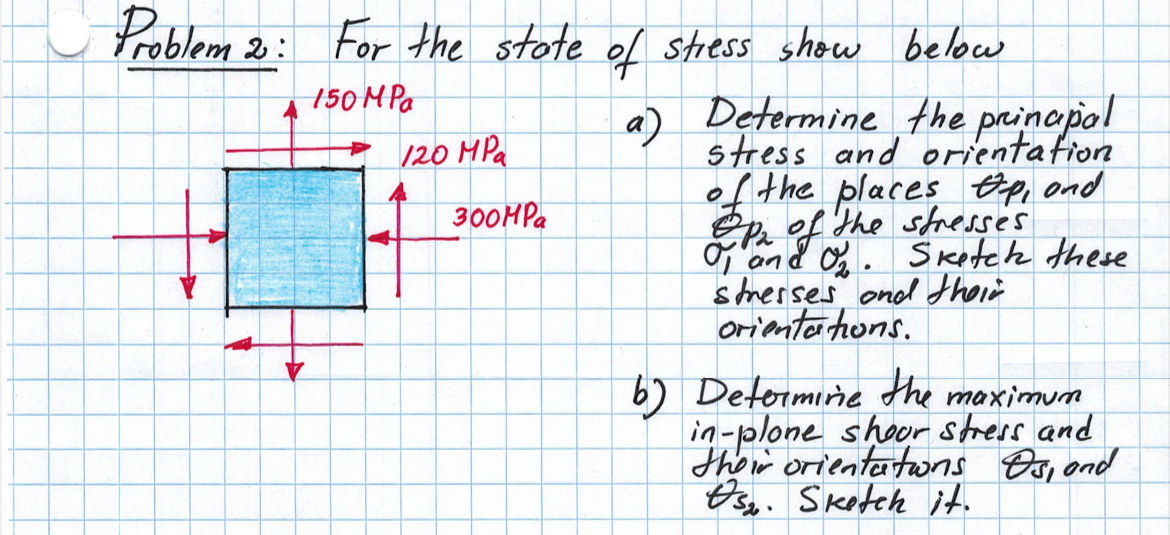 Problem 2: For the state of stress show below
150 MPa
120 MPa
300MPa
a) Determine the principal
stress and orientation
of the places θp₁ and
θp₂ of the stresses
σ₁ and σ₂. Sketch these
stresses and their
orientations.
b) Determine the maximum
in-plane shear stress and
their orientations θs₁ and
θs₂. Sketch it.